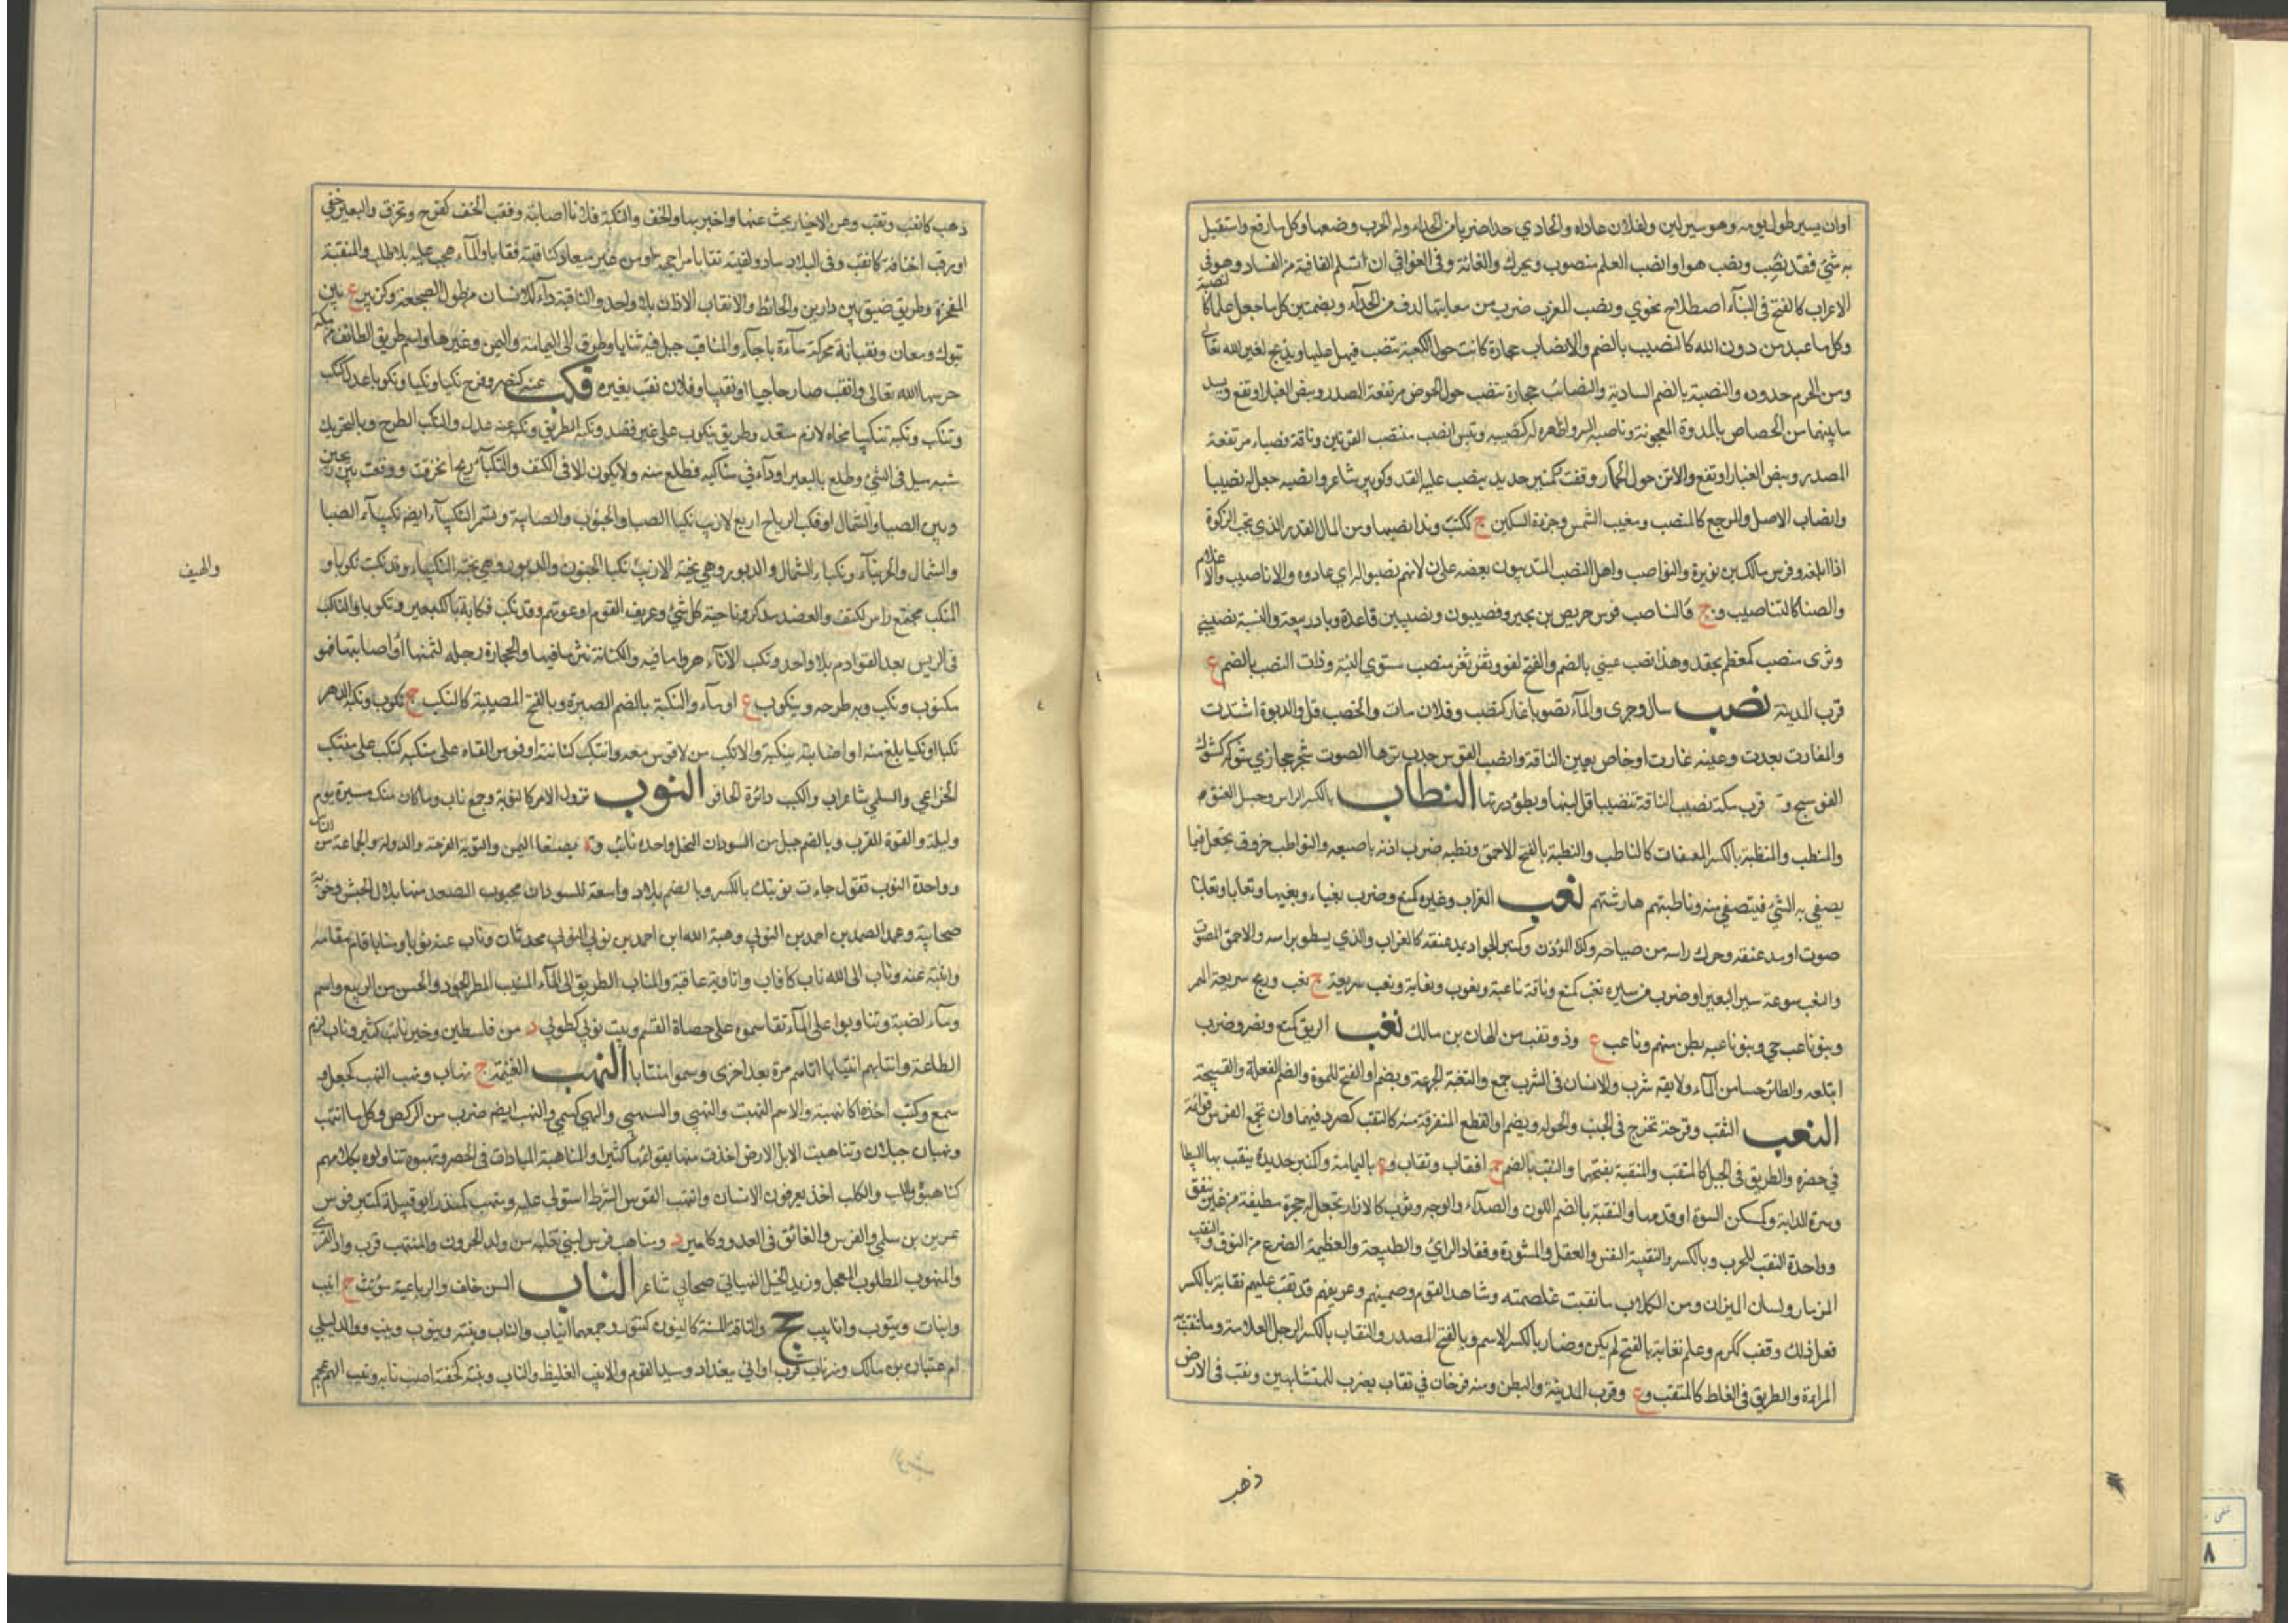 اوان يسير طول يومه وهو سير لين ولفلان عاداه والحادي حدا ضربا من الحداء وله الحرب وضعها وكل ما رفع واستقبل
به شئ فقد نصب ونصب هو او انصب العلم منصوب ويحرك والغاية وفي القوافي ان تسلم القافية من الفساد وهو في
الاعراب كالفتح في البنآء اصطلاح نحوي ونصب العرب ضرب من مغانيها ارق من الحدآء وبضمتين كل ما جعل علما كالنصيبة
وكل ما عبد من دون الله كالنصب بالضم والانصاب حجارة كانت حول الكعبة تنصب فيهل عليها ويذبح لغير الله تعالى
ومن الحرم حدوده والنصبة بالضم السارية والنصائب حجارة تنصب حول الحوض
ما بينها من الخصاص بالمدرة المعجونة وناصبه الشر اظهره له كنصبه وتيس انصب منتصب القرنين وناقة نصباء مرتفعة
الصدر وتنصب الغبار ارتفع والاتن حول الحمار وقفت كمنبر حديد ينصب عليه القدر وكزبير شاعر وانصبه جعل له نصيبا
وانصاب الاصل والمرجع كالمنصب ومغيب الشمس وجزءة السكين ج ككتب وقد انصبها ومن المال القدر الذي تجب الزكوة
اذا بلغه وفرس مالك بن نويرة والنواصب واهل النصب المتدينون ببغضه على لانهم نصبوا له اي عادوه والاناصيب والاعلام
والصنا كالتناصيب و ج فالناصب فرس حريص بن بجير ونصيبون ونصيبين قاعدة ديار ربيعة والنسبة نصيبيني
وثرى منصب كمعظم مجعد وهذا نصب عيني بالضم والفتح لغو وثغر منصب مستوي النبتة وذات النصب بالضم ع
قرب المدينة نضب سال وجرى والمآء نضوبا غار كنضب وفلان مات والخصب قل والدبرة اشتدت
والمفازة بعدت وعينه غارت او خاص بعين الناقة وانضب القوس جذب وترها لتصوت شجر حجازي شوكه كشوك
العوسج و قرب مكة نضبت الناقة تنضيبا قل لبنها وبطؤ درتها النطاب بالكسر الراس وحبل العنق
والمنطب والمنطبة بالكسر المصفاة كالناطب والنطبة بالفتح الاحمق ونطبه ضرب اذنه باصبعه والنواطب خروق تجعل فيما
يصفى به الشئ فيتصفى منه وناطبتهم هارشتهم نعب الغراب وغيره كمنع وضرب نعبا ونعيبا ونعابا وتنعابا
صوت او مد عنقه وحرك راسه من صياحه وكذا المؤذن وكمنبر الجواد يمد عنقه كالغراب والذي يسطو براسه والاحمق المصوت
والنعب سرعة سير البعير او ضرب من سيره نعب كمنع وناقة ناعبة ونعوب ونعابة ومنعب سريعة ج نعب وريح سريعة الممر
وبنو ناعب حي وبنو ناعبة بطن منهم وناعب ع وذو نعب من الهان بن مالك نغب الريق كمنع ونصر وضرب
ابتلعه والطائر حسا من المآء ولا يقه شرب والانسان في الشرب جرع والنغبة الجرعة ويضم او الفتح للمرة والضم
النقب الثقب وقرحة تخرج في الجنب والجرب ويضم او القطع المتفرقة منه كالنقب كصرد فيهما وان تجمع الفرس قوائمه
في حضره والطريق في الجبل كالمنقب والمنقبة بفتحهما والنقب بالضم ج انقاب ونقاب و ة باليمامة وكمنبر حديدة ينقب بها البيطا
وسرة الدابة وكمسكن السرة او قدمها والنقبة بالضم اللون والصدآء والوجه وثوب كالازار تجعل له حجزة مطيفة من غير نيفق
وواحدة النقب للجرب وبالكسر والنقيبة النفس والعقل والمشورة ونفاذ الراي والطبيعة والعظيمة الضرع من النوق والنقيب
المزمار ولسان الميزان ومن الكلاب ما نقبت غلصمته وشاهد القوم وضمينهم وعريفهم قد نقب عليهم نقابة بالكسر
فعل ذلك ونقب ككرم وعلم نقابة بالفتح لم يكن فصار بالكسر الاسم وبالفتح المصدر والنقاب بالكسر الرجل العلامة وما تنتقب به
المراءة والطريق في الغلظ كالمنقب وع وقرب المدينة والبطن ومنه فرخان في نقاب يضرب للمتشابهين ونقب في الارض
ذهب
ذهب كانقب ونقب وعن الاخبار بحث عنها واخبر بها والخف والنكبة فلانا اصابته ونقب الخف كفرح وتخرق والبعير حفي
او رقت اخفافه كانقب وفي البلاد سار ولقيته نقابا مواجهة او من غير ميعاد كناقبته نقابا والمآء هجم عليه بلا طلب والمنقبة
المفخرة وطريق ضيق بين دارين والحائط والانقاب الاذان بلا واحد والناقبة دآء للانسان من طول الضجعة وكزبير ع بين
تبوك ومعان ونقبانة محركة مآءة باجاء والمناقب جبل فيه ثنايا وطرق الى اليمامة واليمن وغيرها واسم طريق الطائف من مكة
حرسها الله تعالى وانقب صار حاجبا او نقيبا وفلان نقب بعيره نكب عنه كنصر وفرح نكبا ونكبا ونكوبا عدل كنكب
وتنكب ونكبه تنكيبا نحاه لازم متعد وطريق ينكوب على غير قصد ونكبه الطريق ونكب عنه عدل والنكب الطرح وبالتحريك
شبه ميل في الشئ وظلع بالبعير او دآء في مناكبه فظلع منه ولا يكون الا في الكتف والنكبآء ريح انحرفت ووقعت بين ريحين
وبين الصبا والشمال او نكب الرياح اربع الازيب نكبا الصبا والجنوب والصابية وتسمى النكيبآء ايضه نكبآء الصبا
والشمال والجربيآء نكباء الشمال والدبور وهي نيحة الازيب نكبا الجنوب والدبور وهي نيحة النكيباء وقد نكبت نكوبا و
المنكب مجتمع راس الكتف والعضد مذكر وناحية كل شئ وعريف القوم او عونهم وقد نكب نكابة بالكسر
في الريش بعد القوادم بلا واحد ونكب الانآء هراق ما فيه والكنانة نثر ما فيها والحجارة رجله لثمتها او اصابتها فهو
منكوب ونكب وبه طرحه وينكوب ع او مآء والنكبة بالضم الصبرة وبالفتح المصيبة كالنكب ج نكوب ونكبه الدهر
نكبا ونكبا بلغ منه او اصابته بنكبة والانكب من لا قوس معه وانتكب كنانته او قوس القاه على منكبه كتنكب على منتكب
الخزاعي والسلمي شاعران والنكب دائرة الحافر النوب نزول الامر كالنوبة وجمع نائب وما كان منك مسيرة يوم
وليلة والقوة القرب وبالضم جيل من السودان النحل واحده نائب و ة بصنعا اليمن والنوبة الفرصة والدولة والجماعة من الناس
وواحدة النوب تقول جاءت نوبتك بالكسر وبالضم بلاد واسعة للسودان بجنوب الصعيد منها بلال الحبشي ونوبة
صحابية وعبد الصمد بن احمد بن النوبي وهبة الله ابن احمد بن نوبي النوبي محدثان وناب عنه نوبا ومنابا قام مقامه
وانبته عنه وناب الى الله تاب كاناب وناوبه عاقبه والمناب الطريق الى المآء المنيب المطر الجود والحسن من الربيع واسم
ومآء لضبة وتناوبوا على المآء تقاسموه على حصاة القسم وبيت نوبى كطوبى د من فلسطين وخير نائب كثير وناب لزم
الطاعة وانتابهم انتيابا اتاهم مرة بعد اخرى وسموا منتابا النهب الغنيمة ج نهاب ونهب النهب كجعل و
سمع وكتب اخذه كانتهبه والاسم النهبة والنهبى والنهيبى والنهيبى كسمى والنهب ايضه ضرب من الركض وكل ما انتهب
ونهبان جبلان وتناهبت الابل الارض اخذت منها بقوائمها كثيرا والمناهبة المباراة في الحضر ونهبوه تناولوه بكلامهم
كناهبوه والكلب اخذ بعرقوب الانسان وانتهب الفرس الشوط استولى عليه ومنهب كمنبر ابو قبيلة كمنبر فرس
عوين بن سلمى والفرس الفائق في العدو وكامير د ومناهب فرس لبني ثعلبة من ولد الحرون والمنتهب قرب وادي القرى
والمنهوب المطلوب المعجل وزيد الخيل النبهاني صحابي شاعر الناب السن خلف الرباعية مؤنث ج انيب
وانياب ونيوب واناييب ج والناقة المسنة كالنيوب كتنور وجمعهما انياب والناب ونيب ونيوب ونيب ووالد ليلى
ام عتبان بن مالك ونهر ناب قرب اوانى ببغداد وسيد القوم والانيب الغليظ والناب ونبته كخفته اصبت نابه ونيب السهم عجم
والهيف